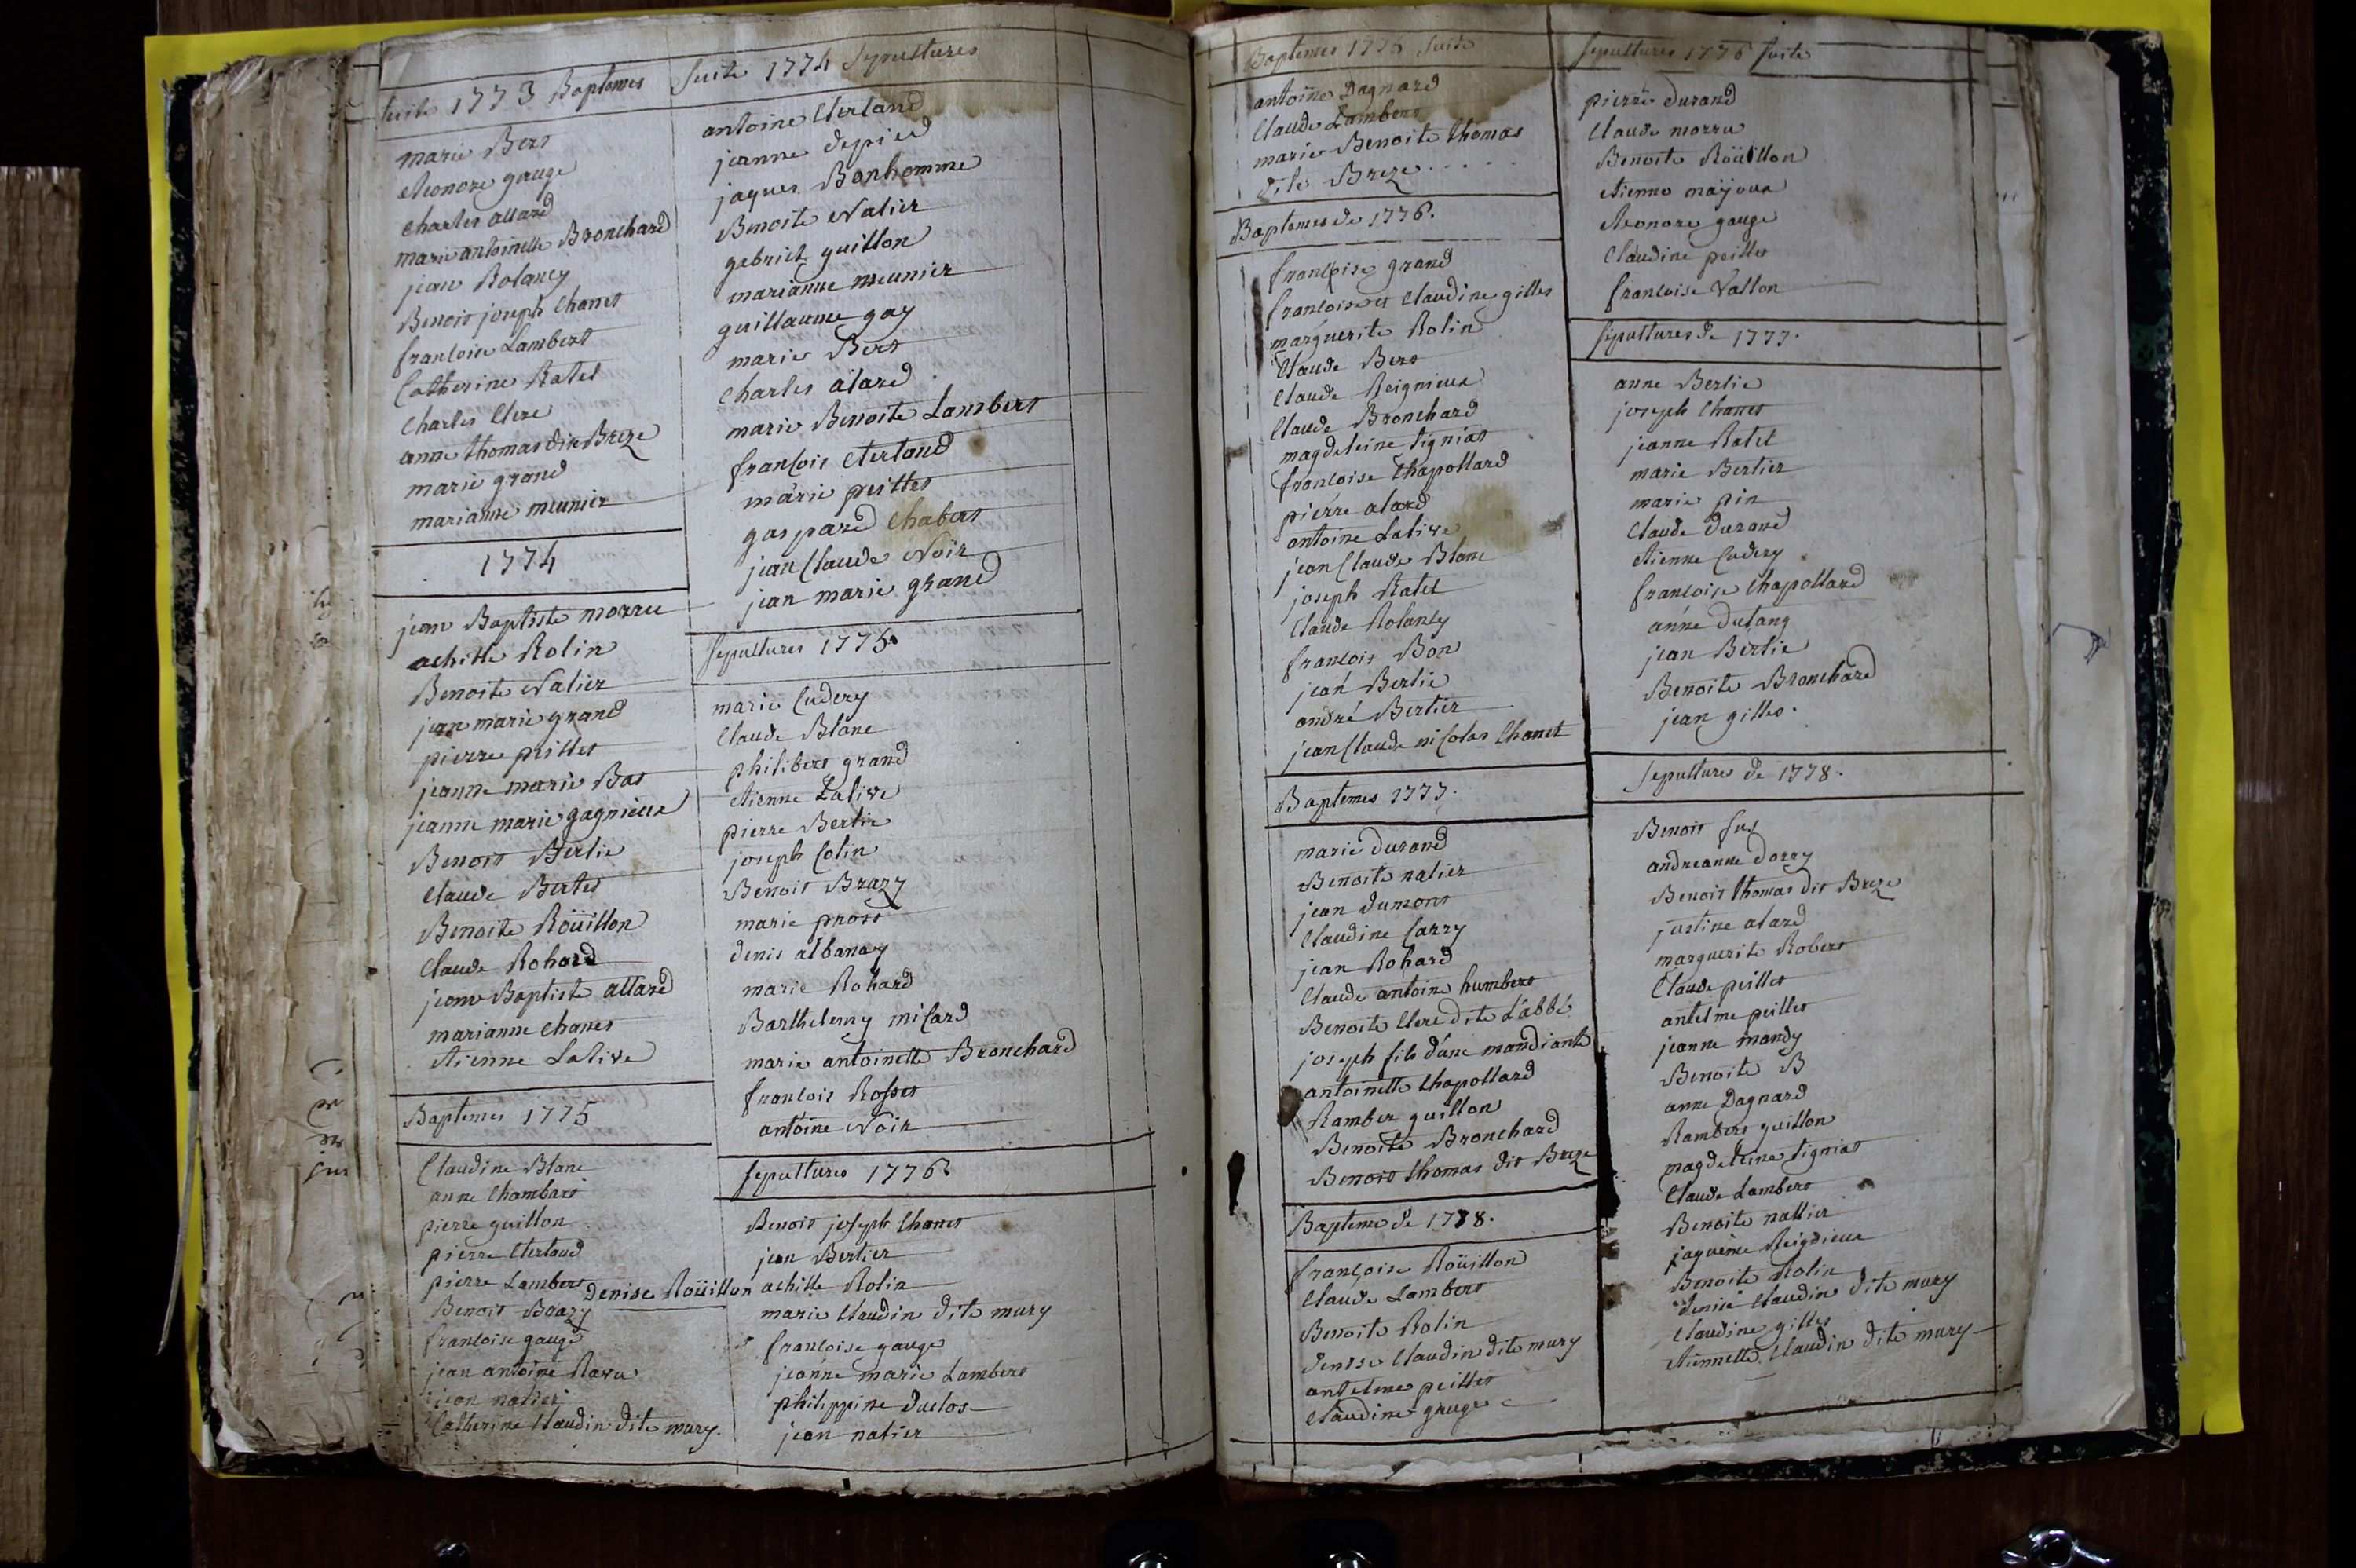 Suite 1773 Baptemes
marie Bert
eleonore gauge
charles allard
marie antoinette Bronchard
jean Rolancy
Benoit joseph Chanet
francoise Lambert
Catherine Ratel
Charles Clere
anne thomas dite Breze
marie grand
marianne meunier
1774
jean Baptiste morru
achille Rolin
Benoite Nalier
jean marie grand
pierre peillet
jeanne marie Bas
jeanne marie gagnieux
Benoit Berlie
Claude Bertet
Benoite Roüillon
Claude Rohard
jean Baptiste allard
marianne Chanet
etienne Lalive
Baptemes 1775
Claudine Blanc
anne Chambard
pierre guillon
pierre Clertand
pierre Lambert
Denise Roüillon
Benoit Brazy
francoise gauge
jean antoine Ravu
jean nalier
Catherine Claudin dite mury.
Suite 1774 Sepultures
antoine Clerland
jeanne depied
jaques Bonhomme
Benoite Nalier
gabriel guillon
marianne meunier
guillaume gay
marie Bert
Charles alard
marie Benoite Lambert
francois Clertand
marie peillet
gaspard Chabert
jean Claude Noir
jean marie grand
Sepultures 1775.
marie Cudery
Claude Blanc
philibert grand
etienne Lalive
pierre Berlie
joseph Colin
Benoit Brazy
marie prost
denis albanay
marie Rohard
Barthelemy micard
marie antoinette Bronchard
francois Rosset
antoine Noir
Sepultures 1776
Benoit joseph Chanet
jean Bertier
achille Rolin
marie Claudin dite mury
francoise gauge
jeanne marie Lambert
philippine duclos
jean nalier
Baptemes 1776 Suite
antoine Dagnard
Claude Lambert
marie Benoite thomas
dite Breze . . . .
Baptemes de 1776.
francoise grand
francoise et Claudine gilles
marguerite Rolin
Claude Bert
Claude Reignieux
Claude Bronchard
magdeleine tignias
francoise Chapollard
pierre alard
antoine Lalive
jean Claude Blanc
joseph Ratel
Claude Rolancy
francois Bon
jean Berlie
andré Bertier
jean Claude nicolas Chanet
Baptemes 1777.
marie durand
Benoite nalier
jean dumont
Claudine Carry
jean Rohard
Claude antoine humbert
Benoite Clere dite L'abbé
joseph fils d'une mandiante
antoinette Chapollard
Rambert guillon
Benoite Bronchard
Benoit thomas dit Breze
Bapteme de 1778.
francoise Roüillon
Claude Lambert
Benoite Rolin
denise Claudin dite mury
antelme peillet
Claudine gauge
Sepultures 1776 Suite
pierre durand
Claude morru
Benoite Roüillon
etienne mayoux
eleonore gauge
Claudine peillet
francoise Vallon
Sepultures de 1777.
anne Berlie
joseph Chanet
jeanne Ratel
marie Bertier
marie pin
Claude durand
etienne Cudery
francoise Chapollard
anne dutang
jean Berlie
Benoite Bronchard
jean gilles.
Sepultures de 1778.
Benoit
andreanne dorry
Benoit thomas dit Breze
justine alard
marguerite Robert
Claude peillet
antelme peillet
jeanne mandy
Benoite B
anne Dagnard
Rambert guillon
magdeleine tignias
Claude Lambert
Benoite nallier
jaqueme
Benoite Rolin
denise Claudin dite mury
Claudine gilles
etiennette Claudin dite mury